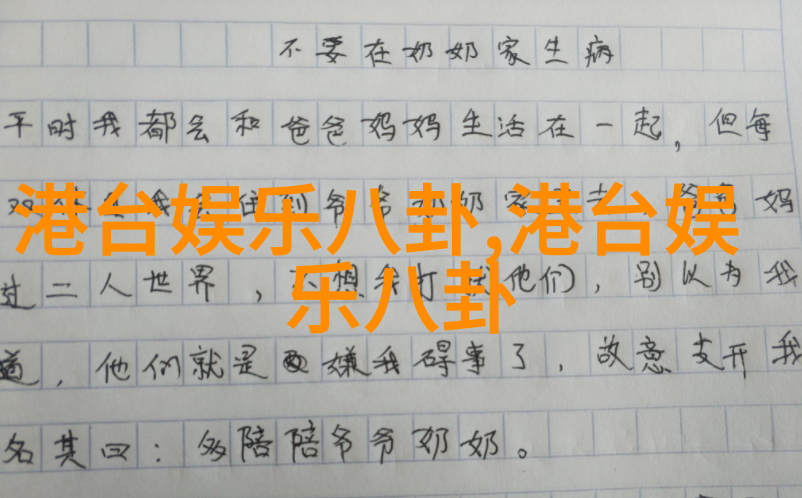 不要在奶奶家生病
平时我都会和爸爸妈妈生活在一起，但每
双 我 住到爷爷奶奶家 爸爸妈
港台娱乐八卦,港台娱
乐八卦
过二人世界， 不想我打扰他们，别以为我
道，他们就是嫌我碍事了，故意支开我
名其曰：多陪陪爷爷奶奶。